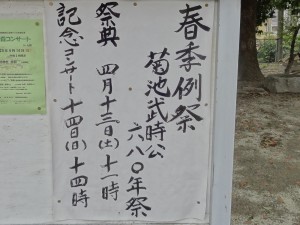 春季例祭
菊池武時公
六八〇年祭
祭典 四月十三日(土)十一時
記念コンサート十四日(日)十四時
コンサート